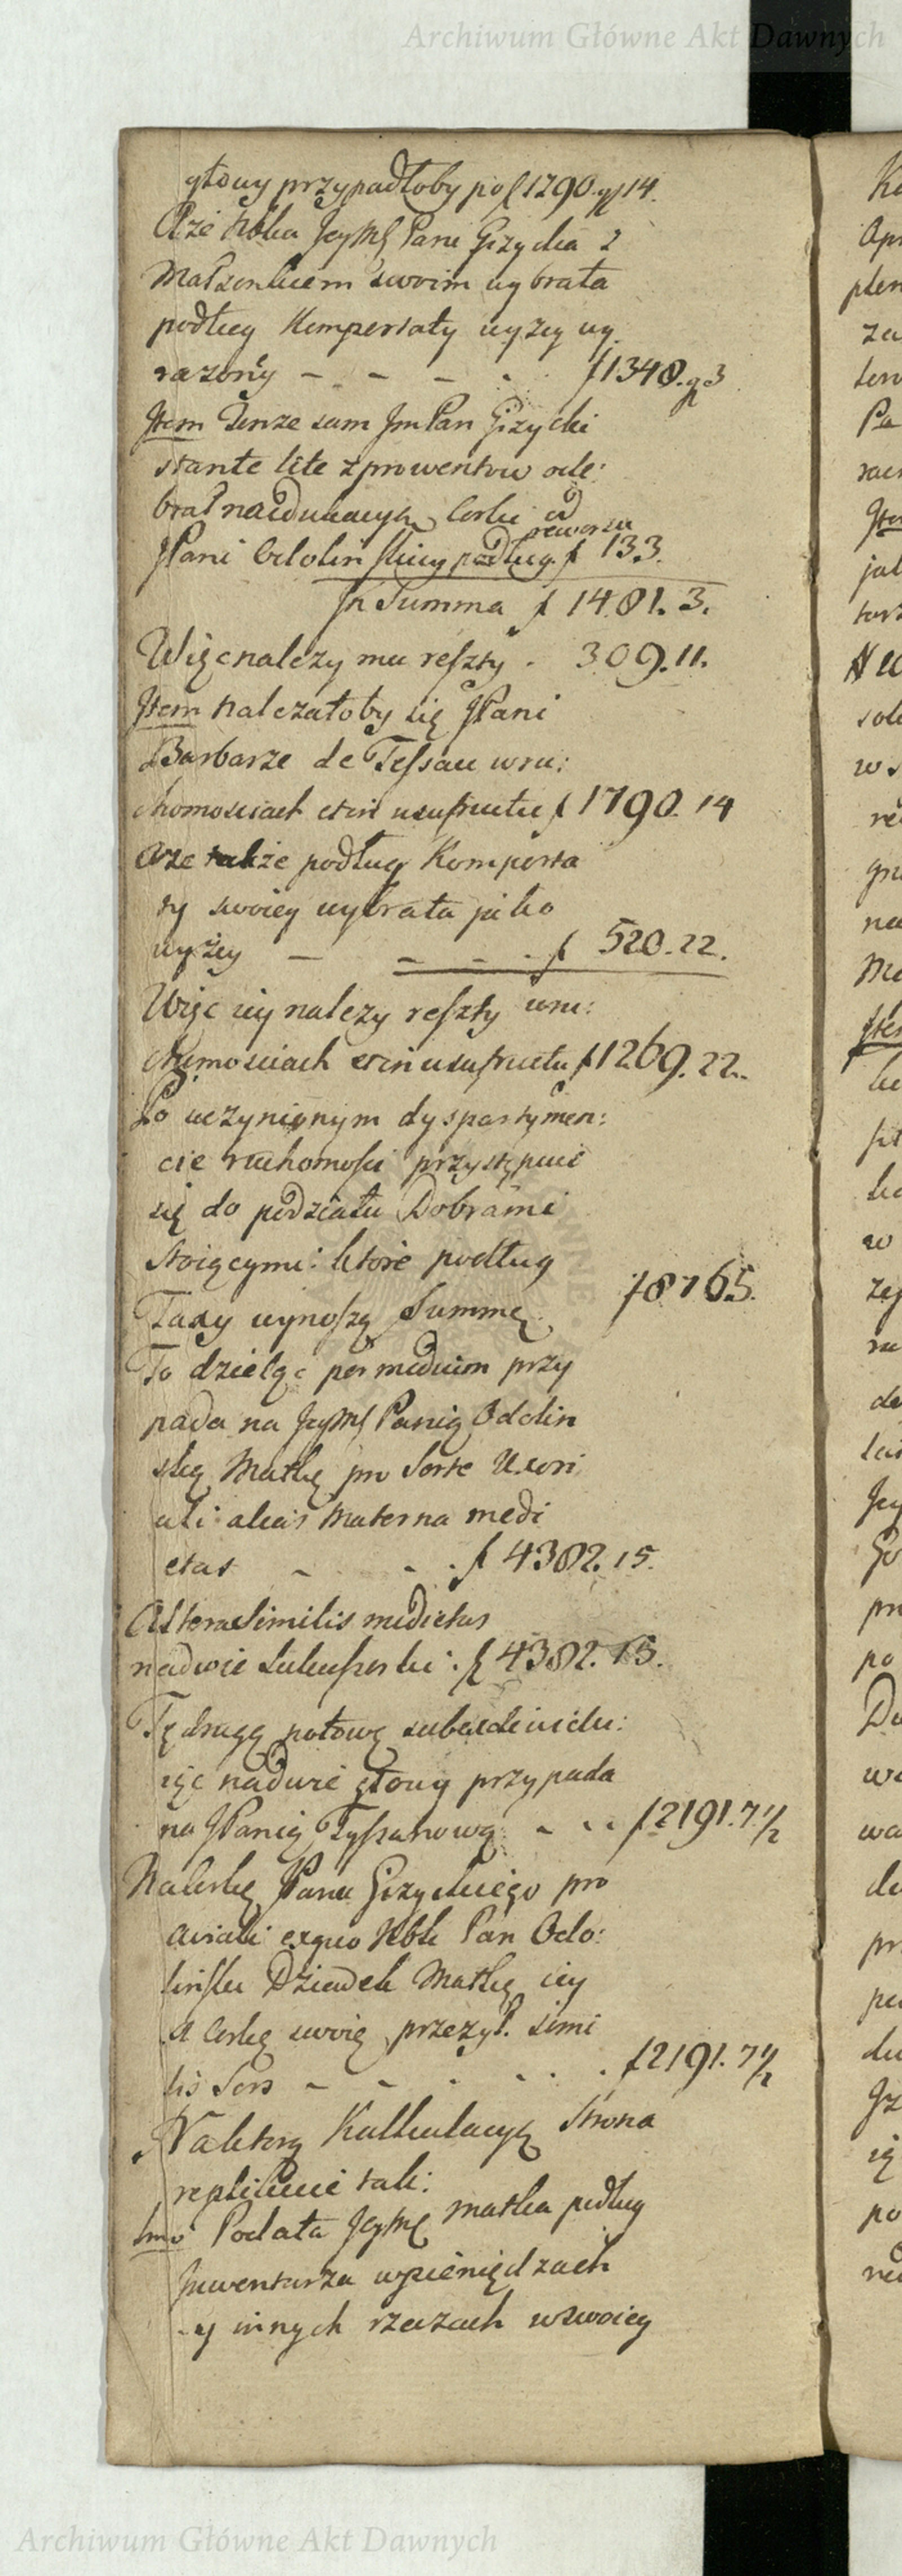 Archiwum Główne Akt Dawnych
głowy przypadłoby po f 1790. gr 14.
A że Nobla Jeymś Pani Gizycka z
Małzonkiem swoim wybrała
podług Komportaty wyzey wy
razony - - - - f 1348. g 3
Item Tenze sam Jm Pan Gizycki
stante lite z prowentow ode:
brał na edukacyą Corki od
rewersu
JPani Odolinskiey podług f 133.
In Summa f 1481. 3.
Więc nalezy mu reszty . 309. 11.
Item nalezałoby się JPani
Barbarze de Tessau w ru:
chomosciach et in usufructu f 1790. 14
A ze także podług Komporta
ty swoiey wybrała jako
wyżey - - - . f 520. 22.
Więc iey nalezy reszty w ru:
chomosciach et in usufructu f 1269. 22.
Po uczynionym dyspartymen:
cie ruchomosci przystępuie
się do podziału Dobrami
stoiącymi: ktore podług
Taxy wynoszą Summę f 8765.
To dzieląc per medium przy
pada na Jeymś Panią Odolin
ską Matkę pro Sorte Uxori
ali alias Materna medi
etas - - . f 4382. 15.
Altera Similis medietas
na dwie Sukcessorki : f 4382. 15.
Tę drugą połowę subdividu:
iąc na dwie głowy przypada
na JPanią Tyssanową - . . f 2191. 7 1/2
Na Corkę Pana Gizyckiego pro
aviali ex quo Nble Pan Odo:
linski Dziadek Matkę iey
a Corkę swoię przezył. simi
lis Sors - - . - . . f 2191. 7 1/2
Na ktorą Kalkulacyą Strona
replikuie tak:
1mo Podała Jeymś Matka podług
Inwentarza w pieniędzach
y innych rzeczach w swoiey
Archiwum Główne Akt Dawnych